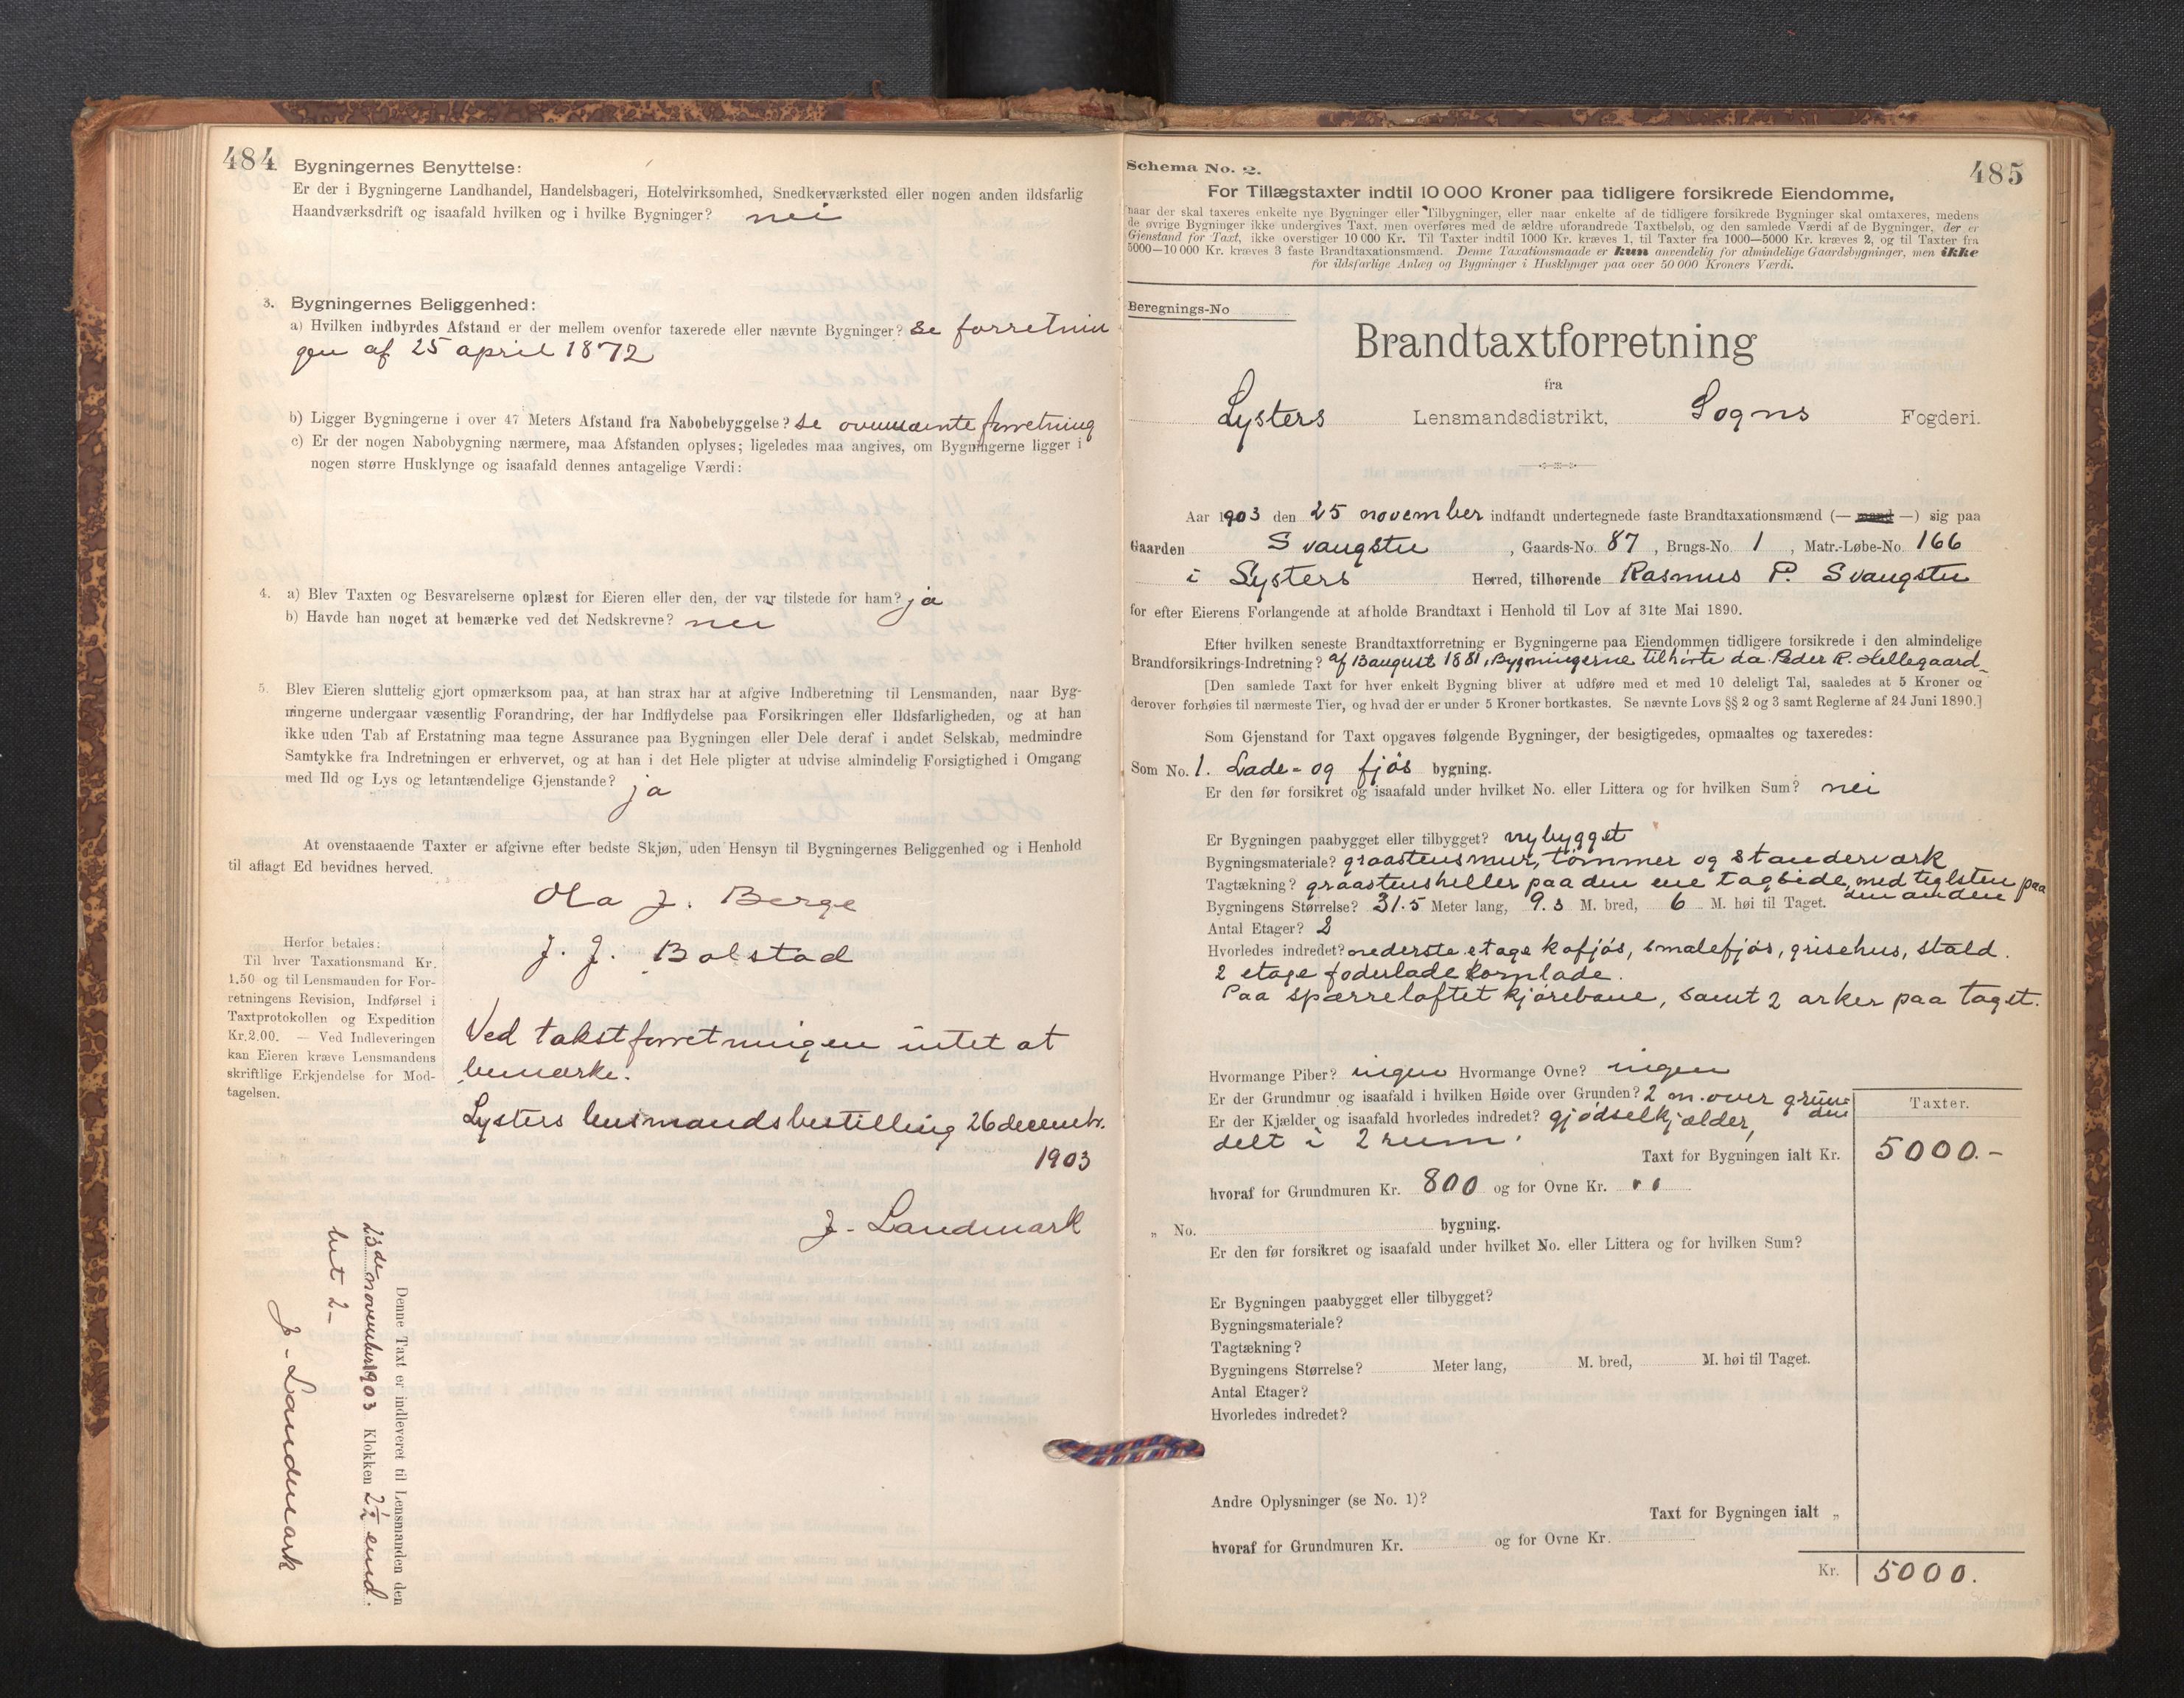 484
Bygningernes Benyttelse:
Er der i Bygningerne Landhandel, Handelsbageri, Hotelvirksomhed, Snedkerværksted eller nogen anden ildsfarlig
Haandværksdrift og isaafald hvilken og i hvilke Bygninger? nei
3. Bygningernes Beliggenhed:
a) Hvilken indbyrdes Afstand er der mellem ovenfor taxerede eller nævnte Bygninger? se forretnin
gen af 25 april 1872
b) Ligger Bygningerne i over 47 Meters Afstand fra Nabobebyggelse? se ovennævnte forretning
c) Er der nogen Nabobygning nærmere, maa Afstanden oplyses; ligeledes maa angives, om Bygningerne ligger i
nogen større Husklynge og isaafald dennes antagelige Værdi:
4. a) Blev Taxten og Besvarelserne oplæst for Eieren eller den, der var tilstede for ham? ja
b) Havde han noget at bemærke ved det Nedskrevne? nei
5. Blev Eieren sluttelig gjort opmærksom paa, at han strax har at afgive Indberetning til Lensmanden, naar Byg-
ningerne undergaar væsentlig Forandring, der har Indflydelse paa Forsikringen eller Ildsfarligheden, og at han
ikke uden Tab af Erstatning maa tegne Assurance paa Bygningen eller Dele deraf i andet Selskab, medmindre
Samtykke fra Indretningen er erhvervet, og at han i det Hele pligter at udvise almindelig Forsigtighed i Omgang
med Ild og Lys og letantændelige Gjenstande? ja
At ovenstaaende Taxter er afgivne efter bedste Skjøn, uden Hensyn til Bygningernes Beliggenhed og i Henhold
til aflagt Ed bevidnes herved.
Ola J. Berge
J. J. Bolstad
Herfor betales:
Til hver Taxationsmand Kr.
1.50 og til Lensmanden for For-
retningens Revision, Indførsel i
Taxtprotokollen og Expedition
Kr.2.00. — Ved Indleveringen
kan Eieren kræve Lensmandens
skriftlige Erkjendelse for Mod-
tagelsen.
Ved takstforretningen intet at
bemærke.
Lysters lensmandsbestilling 26 decembr.
1903
J. Landmark
Denne Taxt er indleveret til Lensmanden den
23de november 1903 Klokken 2½ emd.
bet 2-
J. Landmark
Schema No. 2.
485
For Tillægstaxter indtil 10 000 Kroner paa tidligere forsikrede Eiendomme,
naar der skal taxeres enkelte nye Bygninger eller Tilbygninger, eller naar enkelte af de tidligere forsikrede Bygninger skal omtaxeres, medens
de øvrige Bygninger ikke undergives Taxt, men overføres med de ældre uforandrede Taxtbeløb, og den samlede Værdi af de Bygninger, der er
Gjenstand for Taxt, ikke overstiger 10 000 Kr. Til Taxter indtil 1000 Kr. kræves 1, til Taxter fra 1000—5000 Kr. kræves 2, og til Taxter fra
5000—10 000 Kr. kræves 3 faste Brandtaxationsmænd. Denne Taxationsmaade er kun anvendelig for almindelige Gaardsbygninger, men ikke
for ildsfarlige Anlæg og Bygninger i Husklynger paa over 50 000 Kroners Værdi.
Beregnings-No
Brandtaxtforretning
fra
Lysters Lensmandsdistrikt, Sogns Fogderi.
Aar 1903 den 25 november indfandt undertegnede faste Brandtaxationsmænd (— mand —) sig paa
Gaarden Svangstu, Gaards-No. 87, Brugs-No. 1, Matr.-Løbe-No. 166
i Lysters Herred, tilhørende Rasmus P. Svangstu
for efter Eierens Forlangende at afholde Brandtaxt i Henhold til Lov af 31te Mai 1890.
Efter hvilken seneste Brandtaxtforretning er Bygningerne paa Eiendommen tidligere forsikrede i den almindelige
Brandforsikrings-Indretning? af 13 august 1881, Bygningerne tilhörte da Peder R. Hellegaard
[Den samlede Taxt for hver enkelt Bygning bliver at udføre med et med 10 deleligt Tal, saaledes at 5 Kroner og
derover forhøies til nærmeste Tier, og hvad der er under 5 Kroner bortkastes. Se nævnte Lovs §§ 2 og 3 samt Reglerne af 24 Juni 1890.]
Som Gjenstand for Taxt opgaves følgende Bygninger, der besigtigedes, opmaaltes og taxeredes:
Som No. 1. Lade- og fjös bygning.
Er den før forsikret og isaafald under hvilket No. eller Littera og for hvilken Sum? nei
Er Bygningen paabygget eller tilbygget? nybygget
Bygningsmateriale? graastensmur, tømmer og standerværk
Tagtækning? graastensheller paa den ene tagside, med teglsten paa
den anden
Bygningens Størrelse? 31.5 Meter lang, 9.3 M. bred, 6 M. høi til Taget.
Antal Etager? 2
Hvorledes indredet? nederste etage kofjös, smalefjös, grisehus, stald.
2 etage foderlade kornlade.
Paa spærreloftet kjörebane, samt 2 arker paa taget.
Hvormange Piber? ingen Hvormange Ovne? ingen
Er der Grundmur og isaafald i hvilken Høide over Grunden? 2 m. over grun-
den
Er der Kjælder og isaafald hvorledes indredet? gjödselkjælder,
delt i 2 rum.
Taxter.
Taxt for Bygningen ialt Kr. 5000.-
hvoraf for Grundmuren Kr. 800 og for Ovne Kr. " "
„ No. bygning.
Er den før forsikret og isaafald under hvilket No. eller Littera og for hvilken Sum?
Er Bygningen paabygget eller tilbygget?
Bygningsmateriale?
Tagtækning?
Bygningens Størrelse? Meter lang, M. bred, M. høi til Taget.
Antal Etager?
Hvorledes indredet?
Andre Oplysninger (se No. 1)?
Taxt for Bygningen ialt „
hvoraf for Grundmuren Kr. og for Ovne Kr.
Kr. 5000.